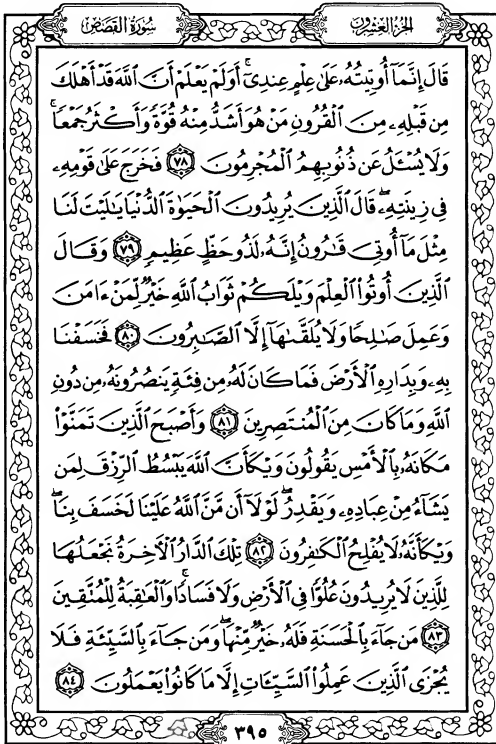 سُورَةُ القَصَصِ الجُزْءُ العِشْرُونَ
قَالَ إِنَّمَآ أُوتِيتُهُۥ عَلَىٰ عِلْمٍ عِندِىٓ ۚ أَوَلَمْ يَعْلَمْ أَنَّ ٱللَّهَ قَدْ أَهْلَكَ
مِن قَبْلِهِۦ مِنَ ٱلْقُرُونِ مَنْ هُوَ أَشَدُّ مِنْهُ قُوَّةً وَأَكْثَرُ جَمْعًا ۚ
وَلَا يُسْـَٔلُ عَن ذُنُوبِهِمُ ٱلْمُجْرِمُونَ ٧٨ فَخَرَجَ عَلَىٰ قَوْمِهِۦ
فِى زِينَتِهِۦ ۖ قَالَ ٱلَّذِينَ يُرِيدُونَ ٱلْحَيَوٰةَ ٱلدُّنْيَا يَـٰلَيْتَ لَنَا
مِثْلَ مَآ أُوتِىَ قَـٰرُونُ إِنَّهُۥ لَذُو حَظٍّ عَظِيمٍ ٧٩ وَقَالَ
ٱلَّذِينَ أُوتُوا۟ ٱلْعِلْمَ وَيْلَكُمْ ثَوَابُ ٱللَّهِ خَيْرٌ لِّمَنْ ءَامَنَ
وَعَمِلَ صَـٰلِحًا وَلَا يُلَقَّىٰهَآ إِلَّا ٱلصَّـٰبِرُونَ ٨٠ فَخَسَفْنَا
بِهِۦ وَبِدَارِهِ ٱلْأَرْضَ فَمَا كَانَ لَهُۥ مِن فِئَةٍ يَنصُرُونَهُۥ مِن دُونِ
ٱللَّهِ وَمَا كَانَ مِنَ ٱلْمُنتَصِرِينَ ٨١ وَأَصْبَحَ ٱلَّذِينَ تَمَنَّوْا۟
مَكَانَهُۥ بِٱلْأَمْسِ يَقُولُونَ وَيْكَأَنَّ ٱللَّهَ يَبْسُطُ ٱلرِّزْقَ لِمَن
يَشَآءُ مِنْ عِبَادِهِۦ وَيَقْدِرُ ۖ لَوْلَآ أَن مَّنَّ ٱللَّهُ عَلَيْنَا لَخَسَفَ بِنَا ۖ
وَيْكَأَنَّهُۥ لَا يُفْلِحُ ٱلْكَـٰفِرُونَ ٨٢ تِلْكَ ٱلدَّارُ ٱلْـَٔاخِرَةُ نَجْعَلُهَا
لِلَّذِينَ لَا يُرِيدُونَ عُلُوًّا فِى ٱلْأَرْضِ وَلَا فَسَادًا ۚ وَٱلْعَـٰقِبَةُ لِلْمُتَّقِينَ
٨٣ مَن جَآءَ بِٱلْحَسَنَةِ فَلَهُۥ خَيْرٌ مِّنْهَا ۖ وَمَن جَآءَ بِٱلسَّيِّئَةِ فَلَا
يُجْزَى ٱلَّذِينَ عَمِلُوا۟ ٱلسَّيِّـَٔاتِ إِلَّا مَا كَانُوا۟ يَعْمَلُونَ ٨٤
٣٩٥